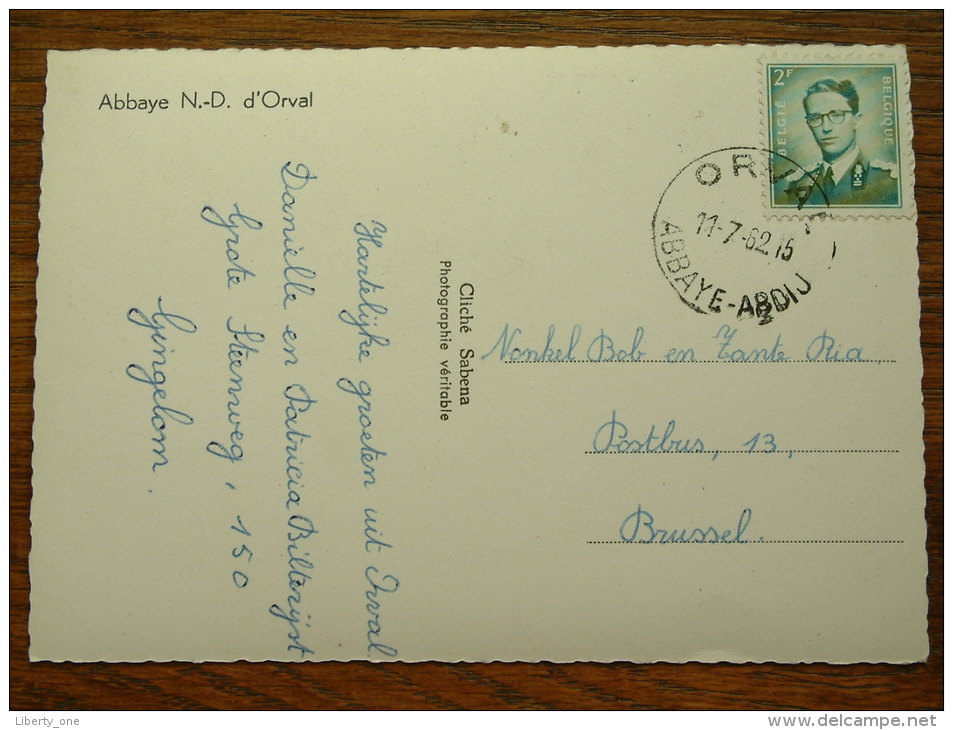 Abbaye N.-D. d'Orval
Hartelijke groeten uit Orval
Danielle en Patricia Bilterijst
Grote Steenweg, 150
Gingelom.
Cliché Sabena
Photographie véritable
2F
BELGIË
BELGIQUE
ORVAL
11-7-62 15
ABBAYE-ABDIJ
Nonkel Bob en Tante Ria
Postbus, 13,
Brussel.
Liberty_one
http://www.delcampe.net